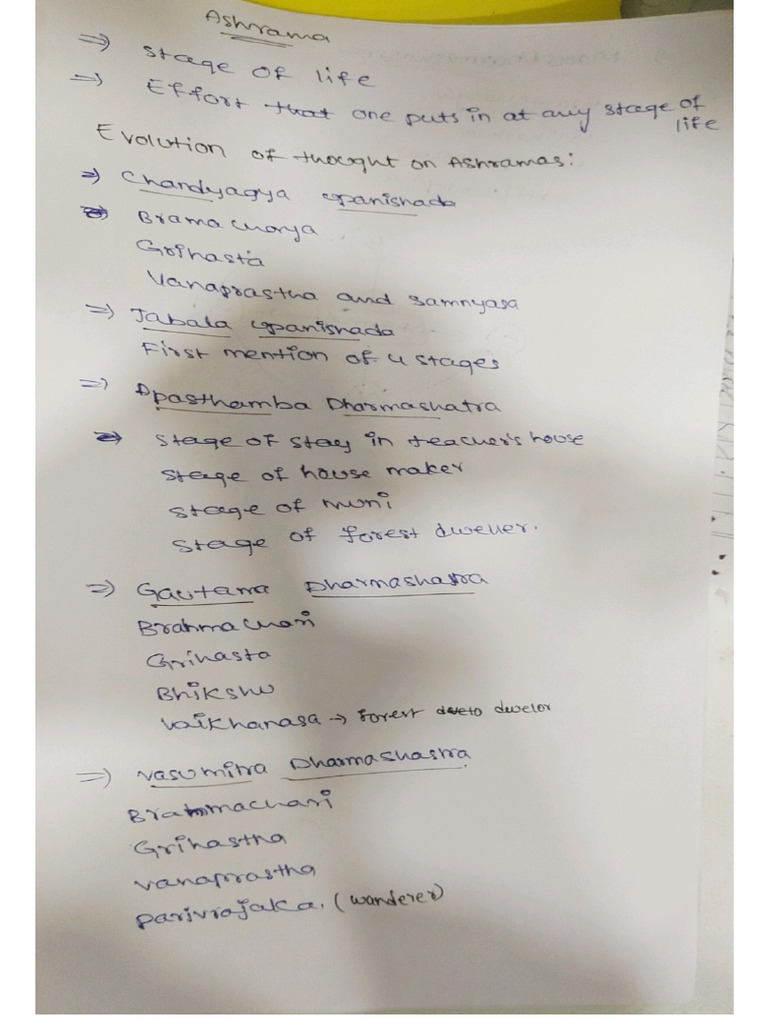 Ashrama
=> Stage of life
=> Effort that one puts in at any stage of life
Evolution of thought on Ashramas:
=> Chandyagya upanishada
=> Bramacharya
Grihasta
Vanaprastha and Samnyasa
=> Jabala upanishada
First mention of 4 stages
=> Apasthamba Dharmashatra
=> Stage of stay in teacher's house
Stage of house maker
Stage of muni
Stage of forest dweller.
=> Gautama Dharmashastra
Brahmachari
Grihasta
Bhikshu
Vaikhanasa -> forest dwelor
=> Vasumitra Dharmashastra
Brahmachari
Grihastha
Vanaprastha
Parivrajaka. (wanderer)